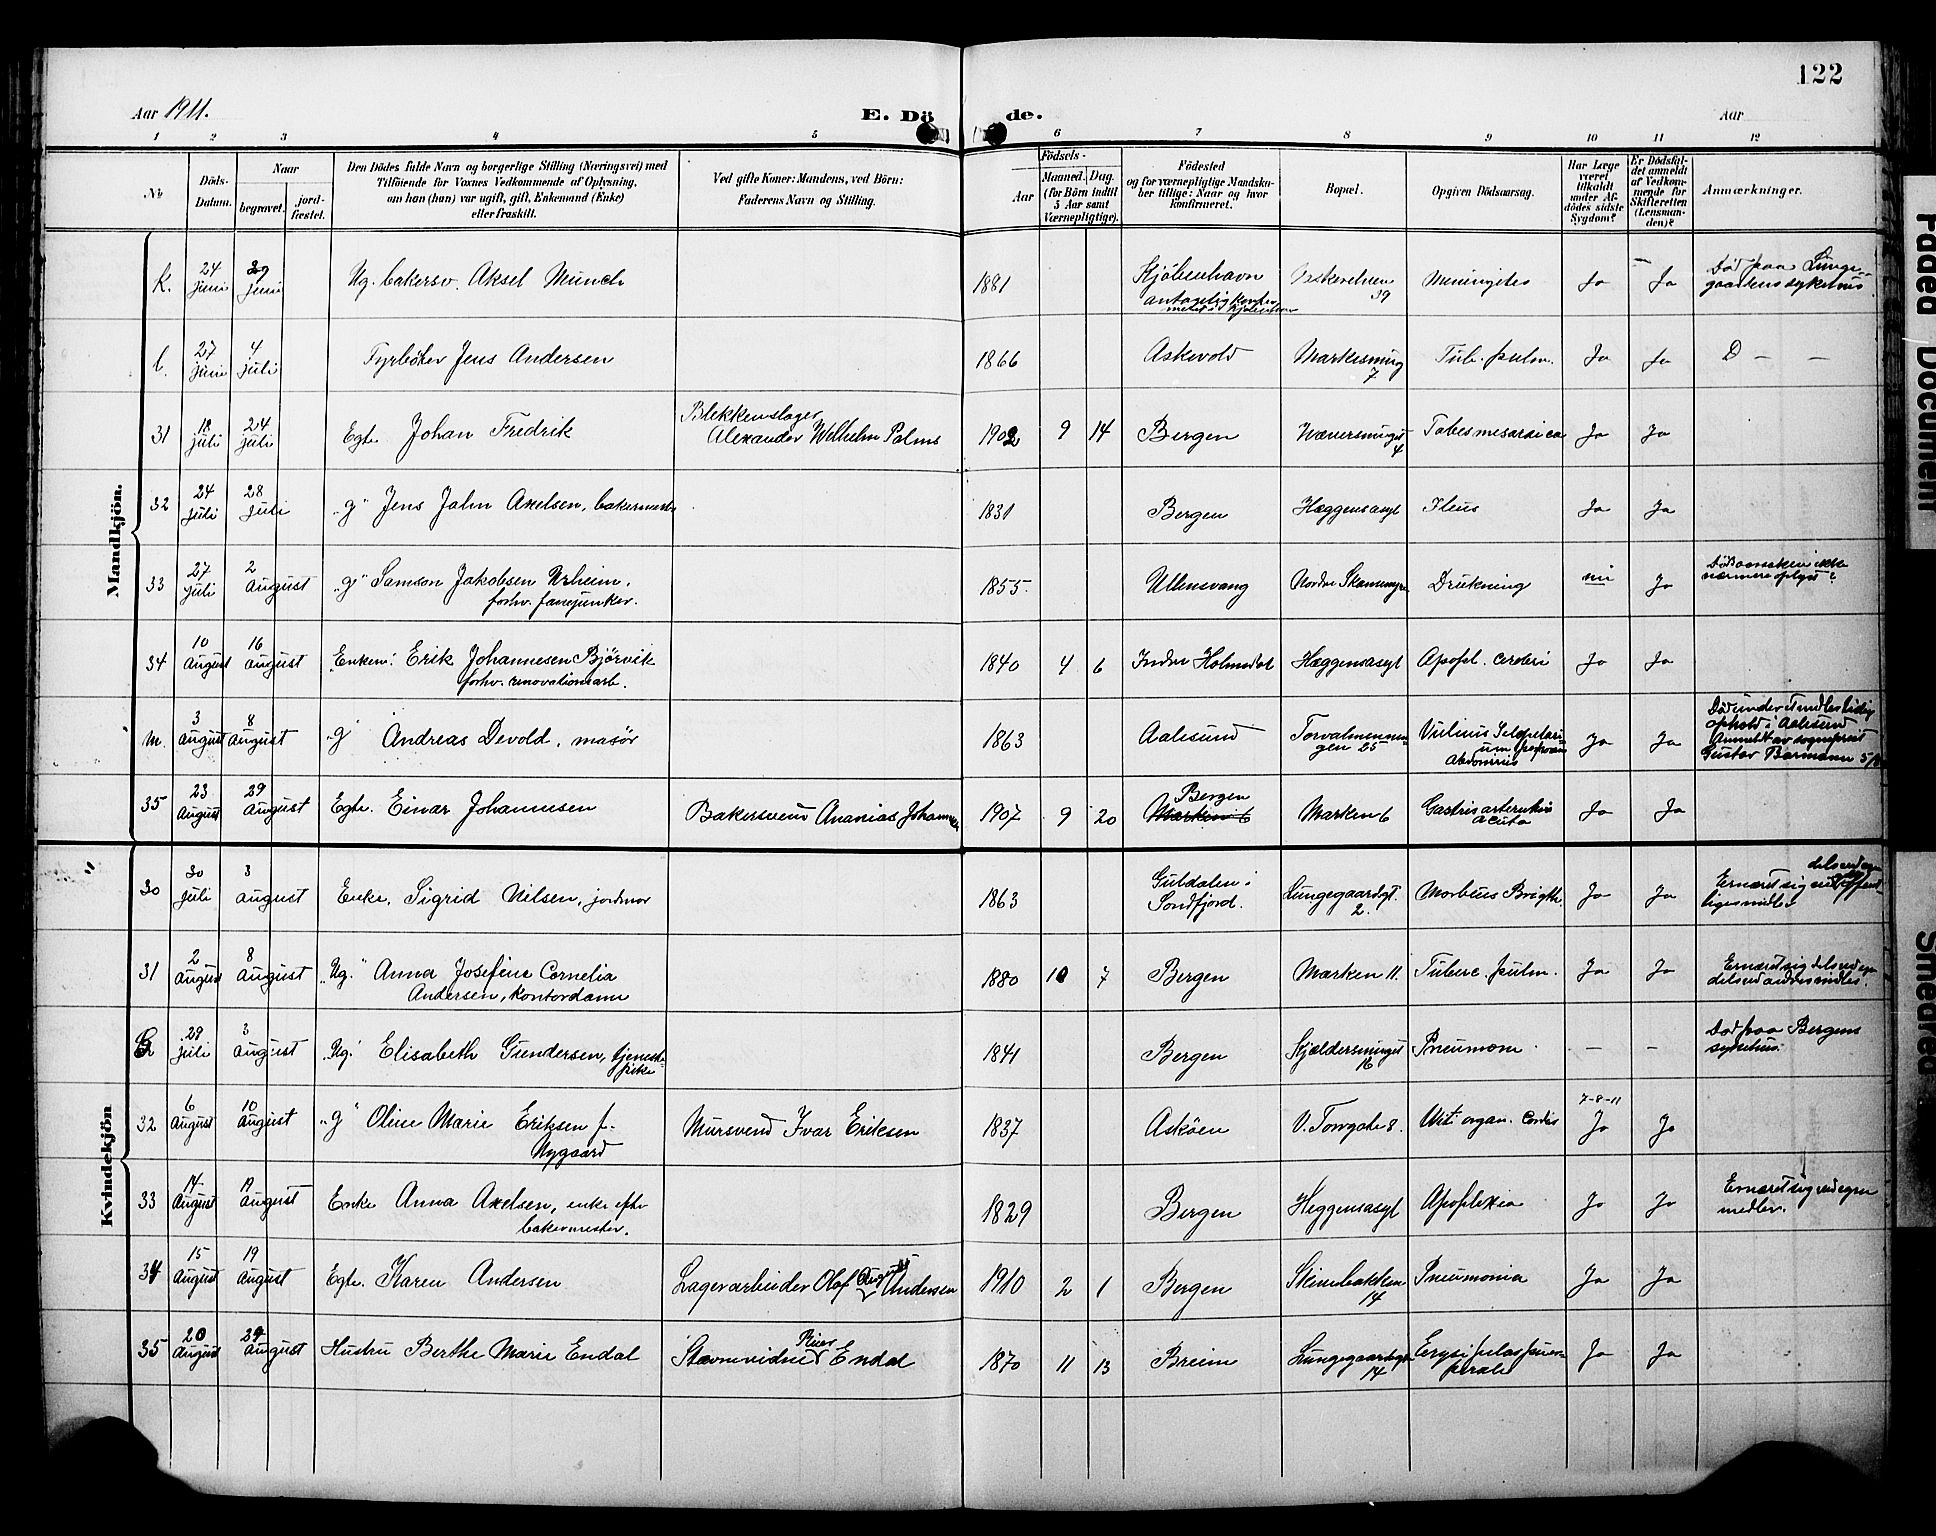 122
Aar 1911.
E. Dö de.
Aar
1 2 3 4 5 6 7 8 9 10 11 12
No
Döds-Datum.
Naar
begravet.
jordfæstet.
Den Dödes fulde Navn og borgerlige Stilling (Næringsvei) med
Tilföiende for Voxnes Vedkommende af Oplysning,
om han (hun) var ugift, gift, Enkemand (Enke)
eller fraskilt.
Ved gifte Koner: Mandens, ved Börn:
Faderens Navn og Stilling.
Födsels-
Aar
Maaned. Dag.
(for Börn indtil
5 Aar samt
Værnepligtige).
Födested
og for værnepligtige Mandska-
ber tillige: Naar og hvor
konfirmeret.
Bopæl.
Opgiven Dödsaarsag.
Har Læge
været
tilkaldt
under Af-
dödes sidste
Sygdom?
Er Dödsfal-
det anmeldt
af Vedkom-
mende for
Skifteretten
(Lensman-
den)?
Anmærkninger.
Mandkjön.
K. 24 juni 29 juni Ug. bakersv. Aksel Munch 1881 Kjöbenhavn 39 Meningites Ja Ja Död paa Lunge-
gaardens sykehus
27 juni 4 juli Fyrböter Jens Andersen 1866 Askevold 7 Tub. pulm. Ja Ja D — —
31 18 juli 24 juli Egte. Johan Fredrik Blekkenslager
Alexander Wilhelm Palms 1902 9 14 Bergen 4 Tabes mesaraica Ja Ja
32 24 juli 28 juli "g" Jens Jahn Axelsen, bakermester 1831 Bergen Hæggensasyl Ileus Ja Ja
33 27 juli 2 August "g" Samson Jakobsen Urheim,
forhv. fanejunker. 1855. Ullensvang Nordre Skanemyren Drukning Ja Dödsaarsaken ikke
nærmere oplyst
34 10 August 16 August Enkem. Erik Johannesen Björvik
forhv. renovationsarb. 1840 4 6 Indre Holmedal Hæggensasyl Apopl. cerebri Ja Ja
m. 3 August 8 August "g" Andreas Devold, masör 1863 Aalesund Torvalmenningen 25 Abdominis Ja Ja Död under et midlertidig
ophold i Aalesund
Anmeldt av sogneprest
Gustav Barmann 5/8
35 23 August 29 August Egte. Einar Johannesen Bakersvend Ananias Johannesen 1907 9 20 Bergen
Marken 6 Marken 6 acuta Ja Ja
Kvindekjön
30 30 juli 3 august Enke, Sigrid Nilsen, jordmor 1863 Guldalen i
Söndfjord. Lungegaardsgt.
2. Morbus Brigthi Ja Ja
31 2 August 8 August "Ug." Anna Josefine Cornelia
Andersen, kontordame 1880 10 7 Bergen Marken 11. Tuberc. pulm. Ja Ja Ernæret sig dels ved egne
dels ved andres midler.
29 juli 3 August "Ug." Elisabeth Gundersen, tjeneste-
pike 1841 Bergen Kjældersmuget
16 Pneumoni — — Död paa Bergens
sykehus.
32 6 August 10 August "g" Oline Marie Eriksen f.
Nygaard Mursvend Ivar Eriksen 1837 Asköen V. Torvgate 8. Vit. organ. Cordis 7-8-11
Ja Ja
33 14 August 19 August Enke Anna Axelsen, enke efter
bakermester. 1829 Bergen Heggensasyl Apoplexia Ja Ja Ernæret sig ved egne
midler.
34 15 August 19 August Egte. Karen Andersen Lagerarbeider Olaf August Andersen 1910 2 1 Bergen Steinebakken
14 Pneumonia Ja Ja
35 20 August 24 August Hustru Berthe Marie Endal Stævnevidne Peder Endal 1870 11 13 Breim Lungegaardsgt.
14 Erysipelas puer-
perale Ja Ja
Faded Document
Smeared